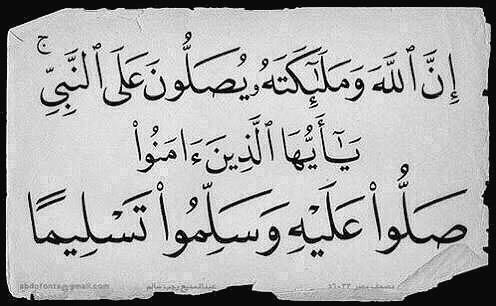 إِنَّ ٱللَّهَ وَمَلَٰٓئِكَتَهُۥ يُصَلُّونَ عَلَى ٱلنَّبِيِّۚ
يَٰٓأَيُّهَا ٱلَّذِينَ ءَامَنُواْ
صَلُّواْ عَلَيْهِ وَسَلِّمُواْ تَسْلِيمًا
abdofonts@gmail.com عبدالسميع رجب سالم